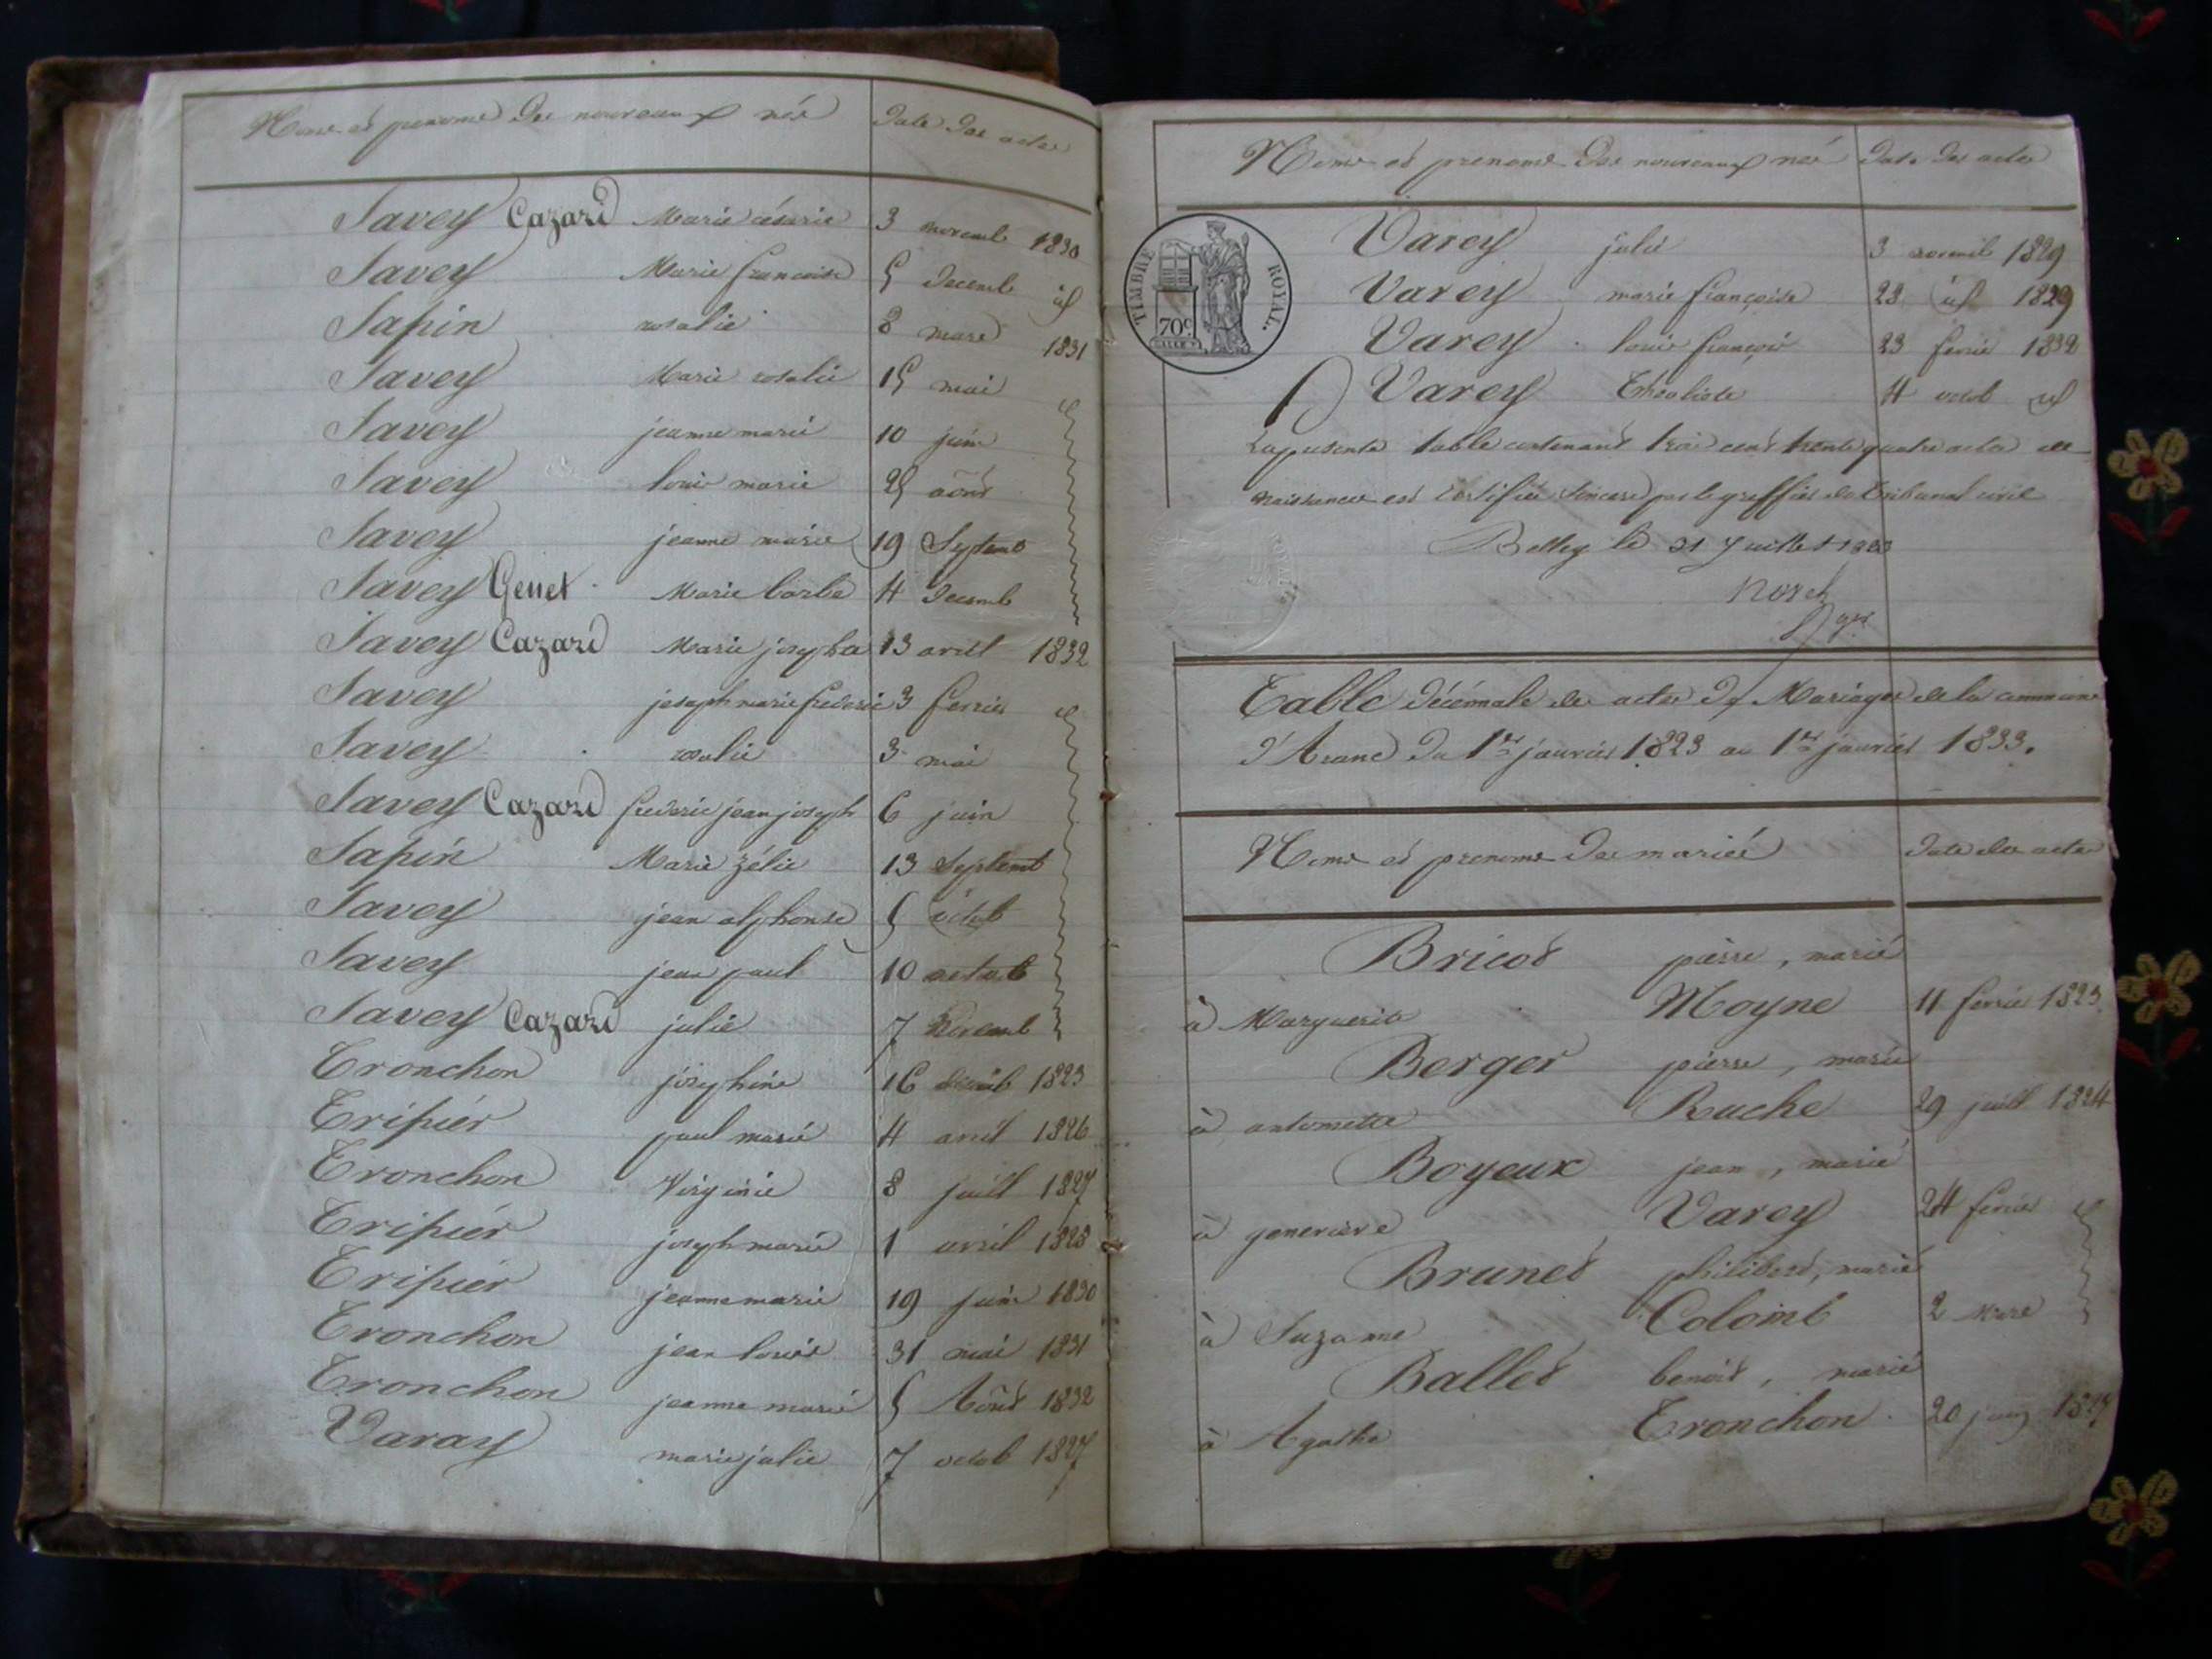 Noms et prenoms des nouveaux nés date des actes
Savey Cazard Marie césarie 3 novemb 1830
Savey Marie françoise 5 decemb id
Sapin rosalie 8 mars 1831
Savey Marie rosalie 15 mai
Savey jeanne marie 10 juin
Savey louis marie 25 août
Savey jeanne marie 19 Septemb
Savey Genet Marie barbe 4 decemb
Savey Cazard Marie josepha 13 avril 1832
Savey joseph marie frederic 3 fevrier
Savey rosalie 3 mai
Savey Cazard frederic jean joseph 6 juin
Sapin Marie zélie 13 Septemb
Savey jean alphonse 5 octob
Savey jean paul 10 octob
Savey Cazard julie 7 Novemb
Tronchon joséphine 16 1823
Tripier paul marie 4 avril 1826
Tronchon Virginie 8 juill 1827
Tripier joseph marie 1 avril 1828
Tripier jeanne marie 19 juin 1830
Tronchon jean louis 31 mai 1831
Tronchon jeanne marie 5 Août 1832
Varay marie julie 7 octob 1827
Noms et prenoms des nouveaux nés date des actes
TIMBRE ROYAL.
70c
Varey julie 3 1829
Varey marie françoise 28 id 1829
Varey louis françois 23 fevrie 1832
Varey 4 octob id
La presente table contenant trois cent trente quatre actes de
naissances est certifiée sincere par le greffier du tribunal civil
Belley le 31 Juillet 1833
Table décénnale des actes de Mariages de la commune
d'Aranc du 1er janvier 1823 au 1er janvier 1833.
Noms et prenoms des mariés date des actes
Bricot pierre, marié
à Marguerite Moyne 11 fevrie 1823
Berger pierre, marié
à antoinette Ruche 29 juill 1824
Boyeux jean, marié
à genevieve Varey 24 fevrie
Brunet philibert, marié
à Suzanne Colomb 2 Mars
Ballet benoit, marié
à Agathe Tronchon 20